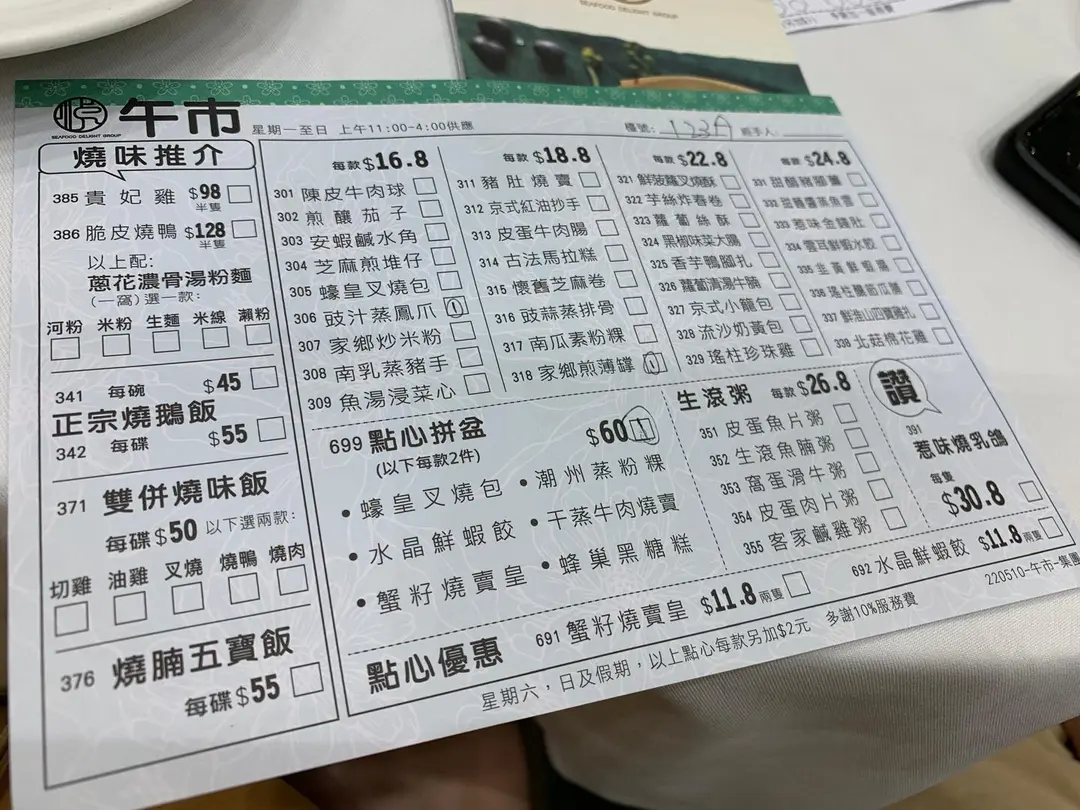 SEAFOOD DELIGHT GROUP
SEAFOOD DELIGHT GROUP
午市
星期一至日 上午11:00-4:00供應
檯號: 123A 經手人:
燒味推介
385 貴妃雞 $98 半隻
386 脆皮燒鴨 $128 半隻
以上配:
蔥花濃骨湯粉麵
(一窩)選一款:
河粉 米粉 生麵 米線 瀨粉
341 每碗 $45
正宗燒鵝飯
342 每碟 $55
371 雙併燒味飯
每碟$50 以下選兩款:
切雞 油雞 叉燒 燒鴨 燒肉
376 燒腩五寶飯
每碟$55
每款$16.8
301 陳皮牛肉球
302 煎釀茄子
303 安蝦鹹水角
304 芝麻煎堆仔
305 蠔皇叉燒包
306 豉汁蒸鳳爪 1
307 家鄉炒米粉
308 南乳蒸豬手
309 魚湯浸菜心
每款$18.8
311 豬肚燒賣
312 京式紅油抄手
313 皮蛋牛肉腸
314 古法馬拉糕
315 懷舊芝麻卷
316 豉蒜蒸排骨
317 南瓜素粉粿
318 家鄉煎薄罉 1
每款$22.8
321 鮮菠蘿叉燒酥
322 芋絲炸春卷
323 蘿蔔絲酥
324 黑椒味菜大腸
325 香芋鴨腳扎
326 蘿蔔清湯牛腩
327 京式小籠包
328 流沙奶黃包
329 瑤柱珍珠雞
每款$24.8
331 甜醋豬腳薑
332
333 惹味金錢肚
334 雲耳鮮蝦水餃
335 韭黃鮮蝦腸
336
337 鮮淮山四寶雞扎
338 北菇棉花雞
699 點心拼盆 $60 1
(以下每款2件)
• 蠔皇叉燒包 • 潮州蒸粉粿
• 水晶鮮蝦餃 • 干蒸牛肉燒賣
• 蟹籽燒賣皇 • 蜂巢黑糖糕
生滾粥 每款$26.8
351 皮蛋魚片粥
352 生滾魚腩粥
353 窩蛋滑牛粥
354 皮蛋肉片粥
355 客家鹹雞粥
讚
391
惹味燒乳鴿
每隻
$30.8
點心優惠 691 蟹籽燒賣皇 $11.8兩隻 692 水晶鮮蝦餃 $11.8兩隻
星期六,日及假期,以上點心每款另加$2元 多謝10%服務費
220510-午市-集團